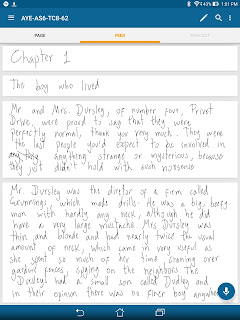 1:01 PM
AYE-AS6-TC8-62
PAGE
FEED
Chapter 1
The boy who lived
Mr. and Mrs. Dursley, of number four, Privet
Drive, were proud to say that they were
perfectly normal, thank you very much. They were
the last people you'd expect to be involved in
anything strange or mysterious, because
they just didn't hold with such nonsense
Mr. Dursley was the director of a firm called
Grunnings, which made drills. He was a big, beefy
man with hardly any neck, although he did
have a very large mustache. Mrs Dursley was
thin and blonde and had nearly twice the usual
amount of neck, which came in very useful as
she spent so much of her time craning over
garden fences, spying on the neighbors The
Dursleys had a small son called Dudley and
in their opinion there was no finer boy anywhere